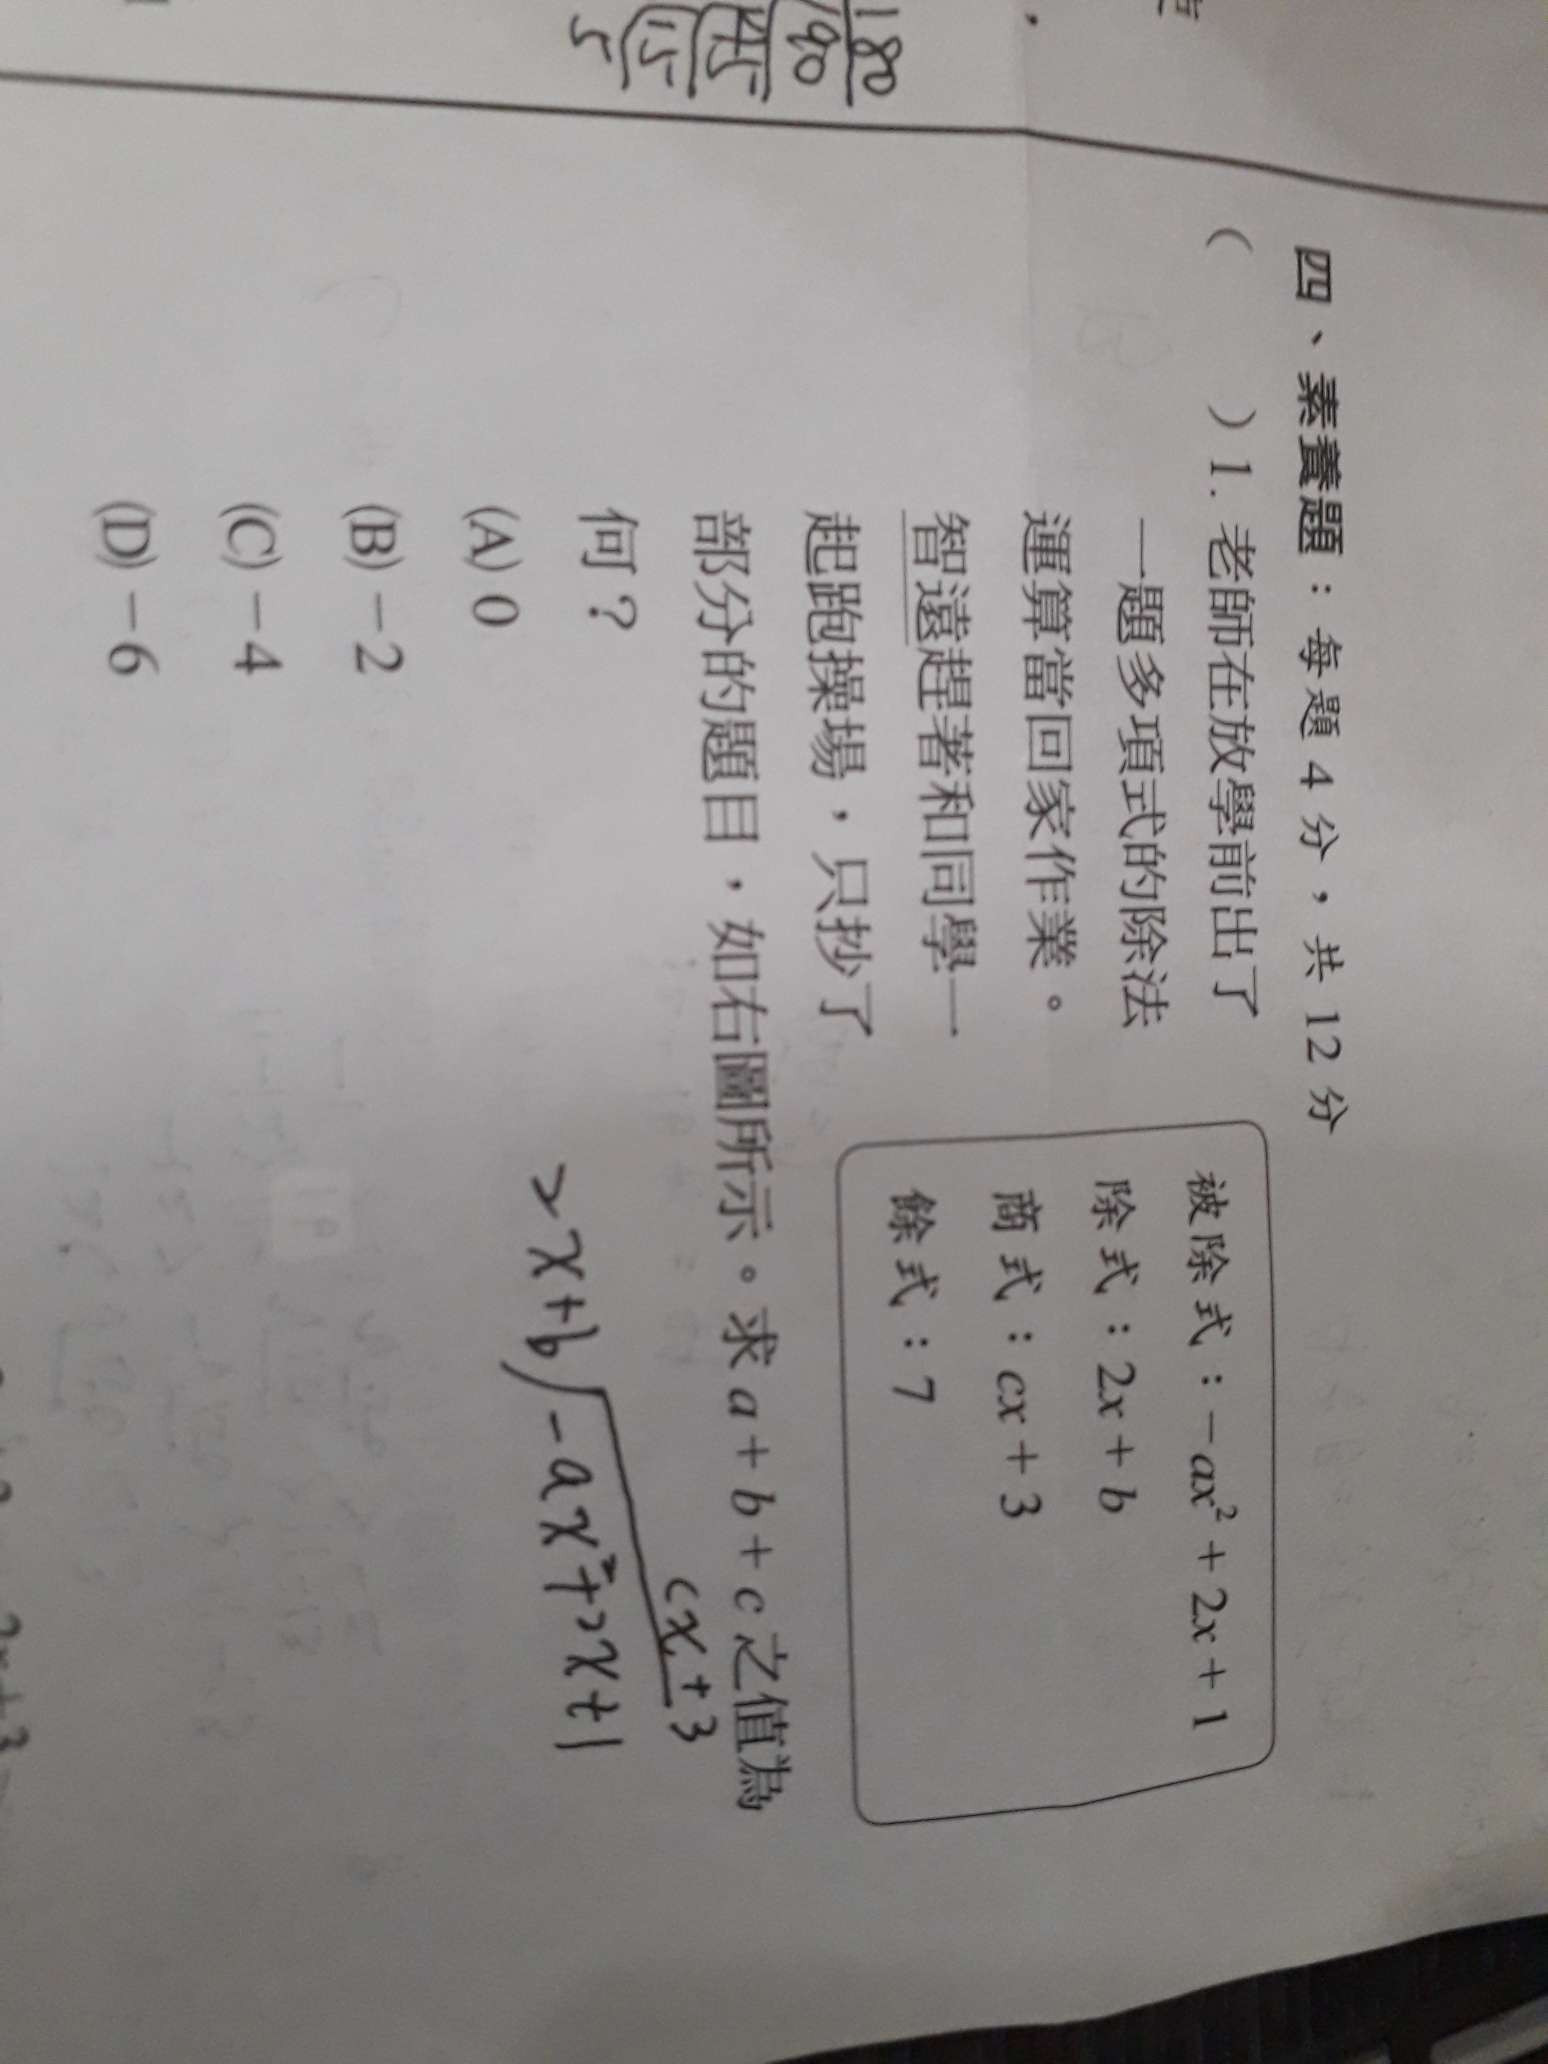 180
90
45
15
5
四、素養題：每題 4 分，共 12 分
（　　）1. 老師在放學前出了
一題多項式的除法
運算當回家作業。
智遠趕著和同學一
起跑操場，只抄了
部分的題目，如右圖所示。求 a + b + c 之值為
何？
被除式：-ax² + 2x + 1
除式：2x + b
商式：cx + 3
餘式：7
(A) 0
(B) -2
(C) -4
(D) -6
cx+3
2x+b -ax²+2x+1